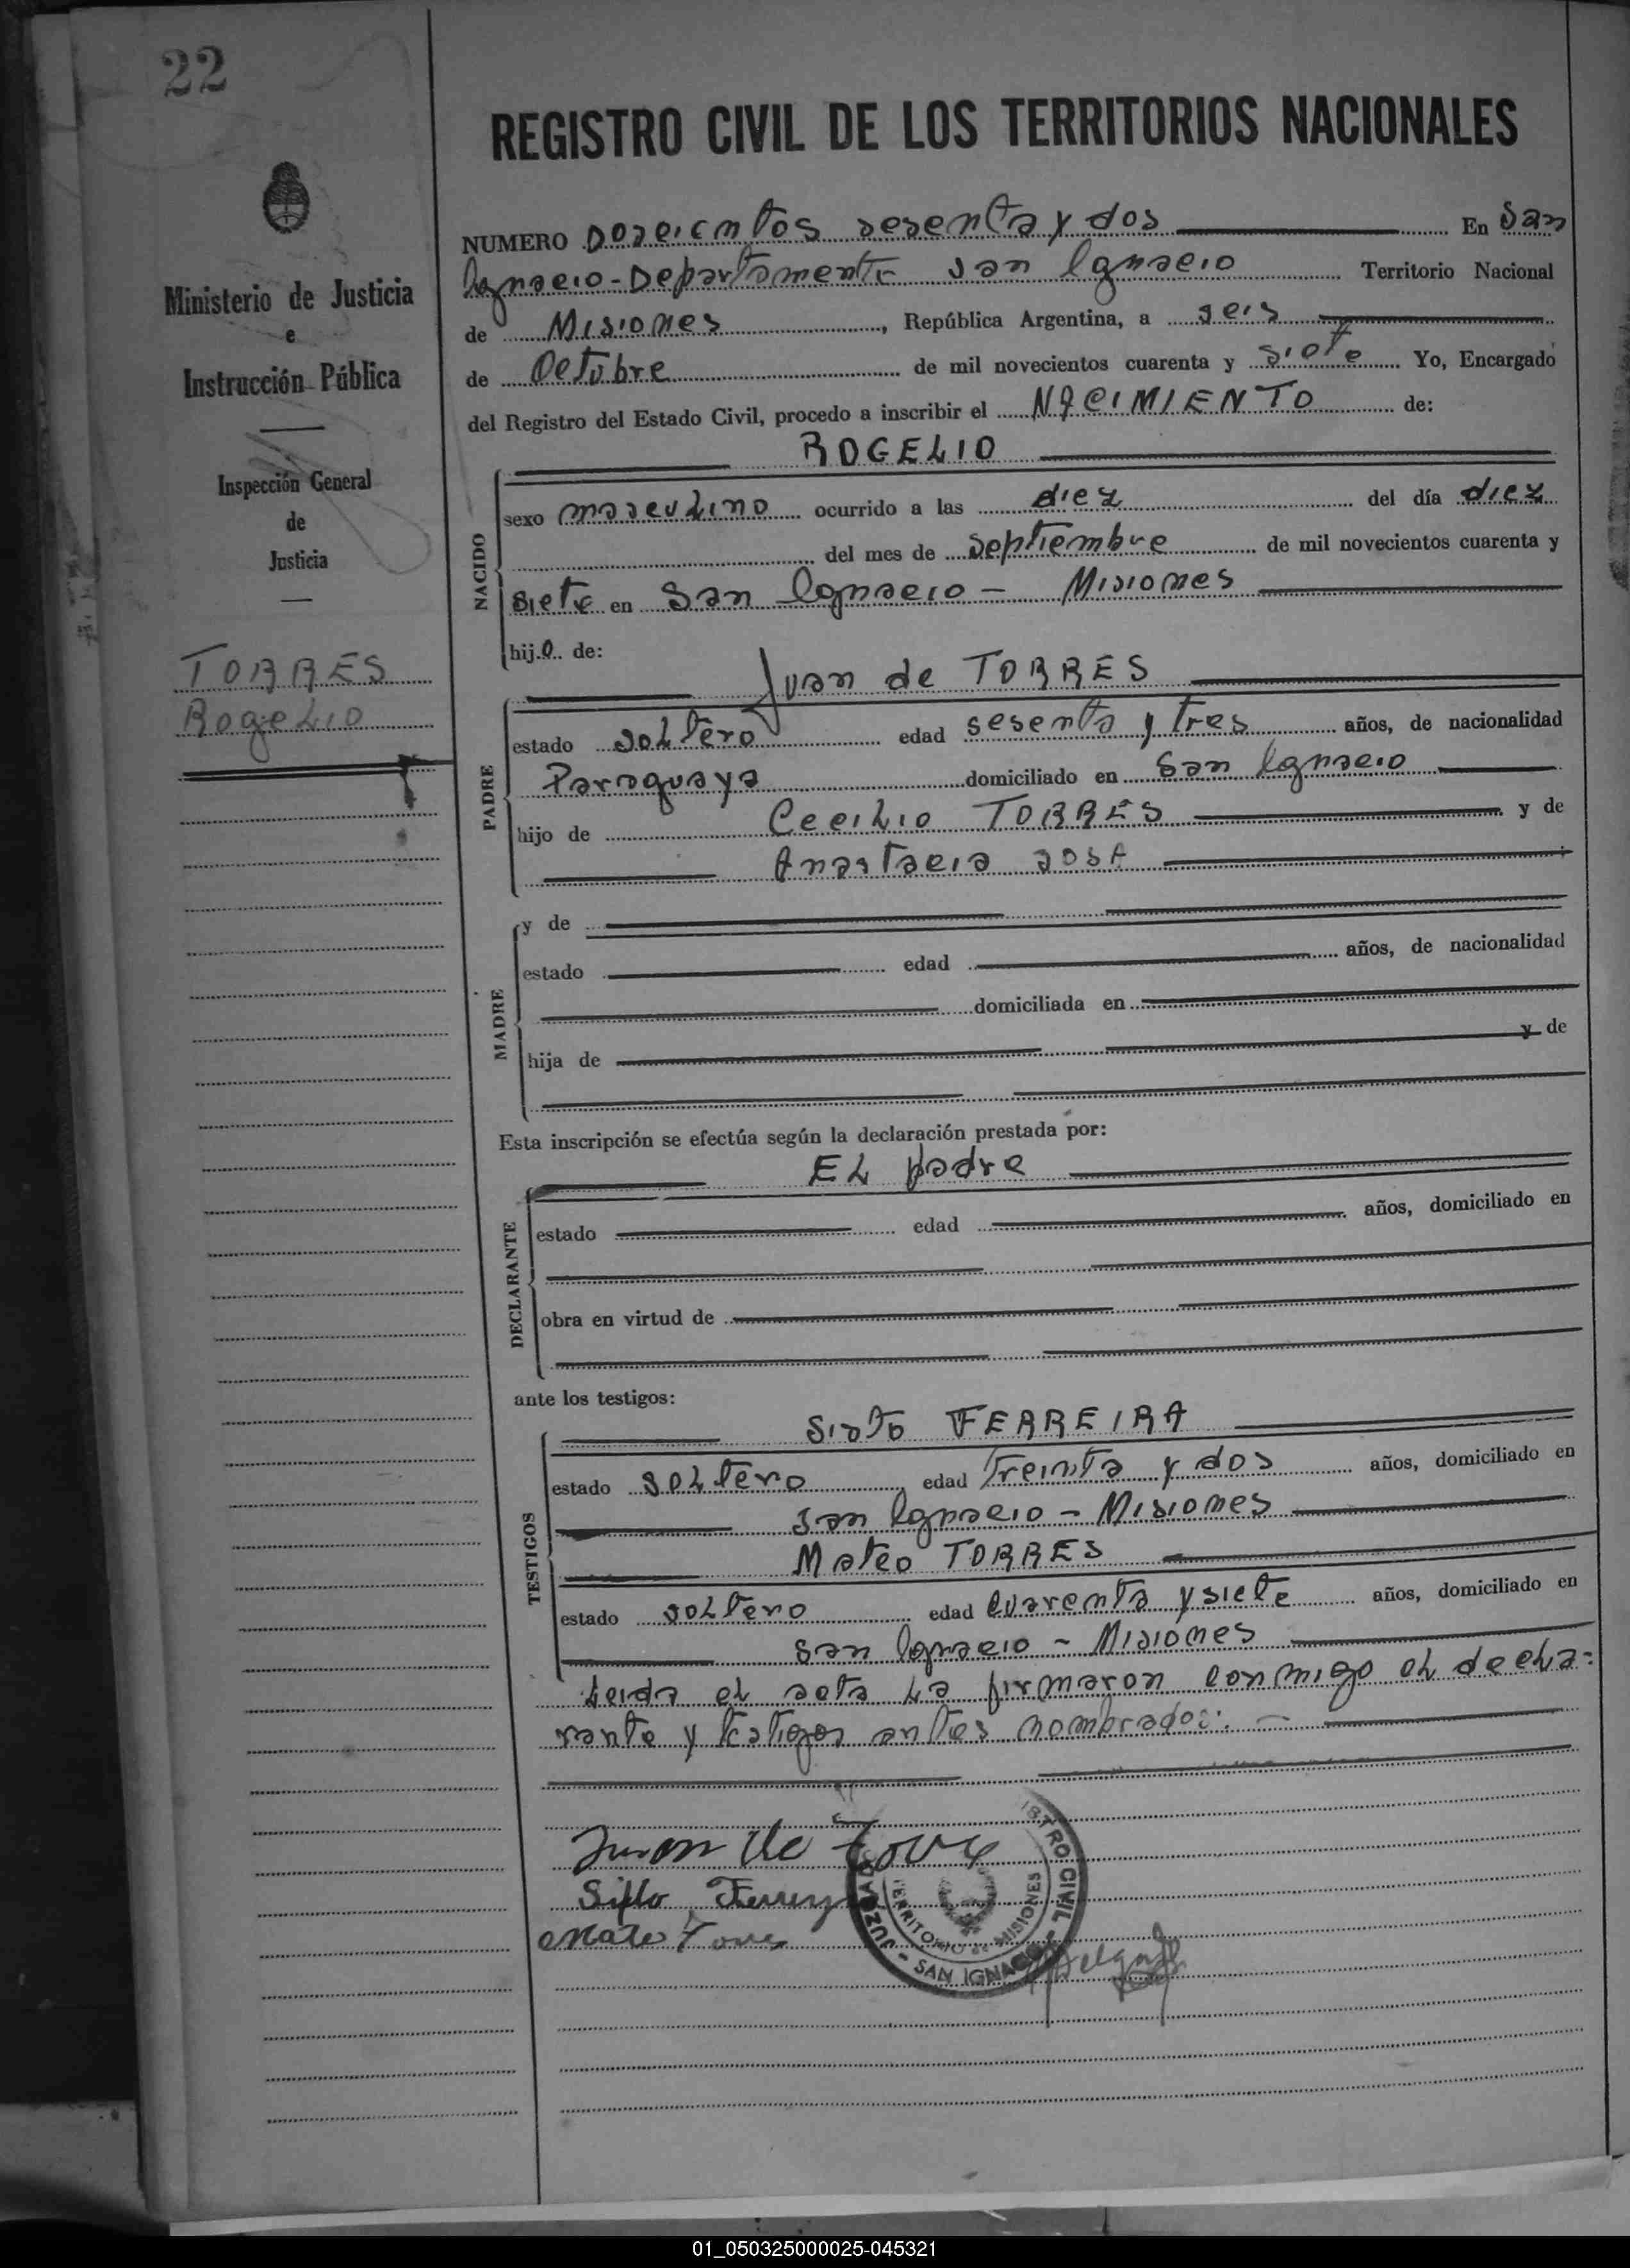 22
REGISTRO CIVIL DE LOS TERRITORIOS NACIONALES
Ministerio de Justicia
e
Instrucción Pública
Inspección General
de
Justicia
TORRES
Rogelio
NUMERO Doscientos sesenta y dos En San
Ignacio - Departamento San Ignacio Territorio Nacional
de Misiones, República Argentina, a seis
de Octubre de mil novecientos cuarenta y siete Yo, Encargado
del Registro del Estado Civil, procedo a inscribir el NACIMIENTO de:
ROGELIO
NACIDO
sexo masculino ocurrido a las diez del día diez
del mes de septiembre de mil novecientos cuarenta y
siete en San Ignacio - Misiones
hijo de:
Juan de TORRES
PADRE
estado soltero edad sesenta y tres años, de nacionalidad
Paraguaya domiciliado en San Ignacio
hijo de Cecilio TORRES y de
Anastacia SOSA
MADRE
y de
estado edad años, de nacionalidad
domiciliada en
hija de y de
Esta inscripción se efectúa según la declaración prestada por:
El padre
DECLARANTE
estado edad años, domiciliado en
obra en virtud de
ante los testigos:
Sisto FERREIRA
TESTIGOS
estado soltero edad Treinta y dos años, domiciliado en
San Ignacio - Misiones
Mateo TORRES
estado soltero edad cuarenta y siete años, domiciliado en
San Ignacio - Misiones
Leida el acta la firmaron conmigo el decla=
rante y testigos antes nombrados. -
Juan de Torre
Mateo Torres
JUZGADO - SAN IGNACIO - REGISTRO CIVIL
TERRITORIO DE MISIONES
01_050325000025-045321